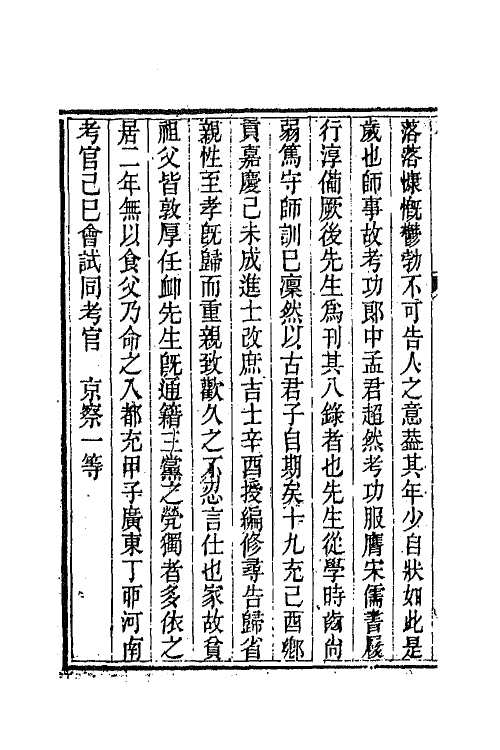 落落慷慨鬱勃不可告人之意葢其年少自狀如此是
歲也師事故考功郎中孟君超然考功服膺宋儒書履
行淳備厥後先生爲刊其八錄者也先生從學時齒尙
弱篤守師訓巳凜然以古君子自期矣十九充己酉鄉
貢嘉慶己未成進士改庶吉士辛酉授編修尋告歸省
親性至孝旣歸而重親致歡久之不忍言仕也家故貧
祖父皆敦厚任卹先生旣通籍三黨之煢獨者多依之
居二年無以食父乃命之入都充甲子廣東丁卯河南
考官己巳會試同考官　京察一等